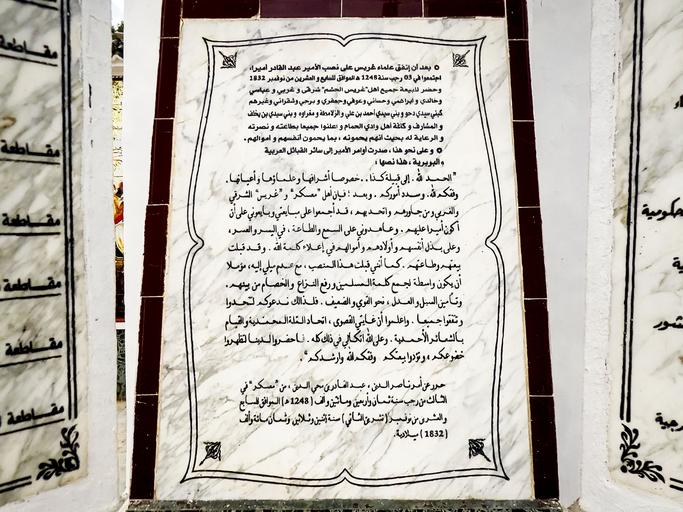 بعد أن إتفق علماء غريس على نصب الأمير عبد القادر أميرا،
اجتمعوا في 03 رجب سنة 1248 هـ الموافق للسابع و العشرين من نوفمبر 1832
وحضر للبيعة جميع أهل "غريس الحشم" شرقي و غربي و عباسي
وخالدي و ابراهمي و حساني و عوفي و جعفري و برجي و شقراني وغيرهم
كبني سيدي دحو و بني سيدي أحمد بن علي و الزلامطة و مغراوه و بني سيدي بن يخلف
و المشارف و كافة أهل وادي الحمام و اعلنوا جميعا بطاعته و نصرته
و الرعاية له بحيث انهم يحمونه ، بما يحمون أنفسهم و أموالهم .
و على نحو هذا ، صدرت أوامر الأمير إلى سائر القبائل العربية
و البربرية ، هذا نصها :
"الحمد لله . إلى قبيلة كذا . . خصوصا أشرافها و علماؤها و أعيانها.
وفقكم الله . وسدد أموركم . وبعد : فإن أهل "معسكر" و "غريس" الشرقي
والغربي و من جاورهم واتحد بهم ، قد أجمعوا على مبايعتي وبايعوني على أن
أكون أميرا عليهم . وعاهدوني على السمع والطاعة ، في اليسر والعسر ،
وعلى بذل أنفسهم و أولادهم و أموالهم في إعلاء كلمة الله . وقد قبلت
بيعتهم وطاعتهم . كما أنني قبلت هذا المنصب ، مع عدم ميلي إليه ، مؤملا
أن يكون واسطة لجمع كلمة المسلمين ورفع النزاع والخصام من بينهم.
وتأمين السبل والعدل ، نحو القوي و الضعيف . فلذلك ندعوكم لتتحدوا
وتتفقوا جميعا . واعلموا أن غايتي القصوى ، اتحاد الملة المحمدية والقيام
بالشعائر الأحمدية . وعلى الله اتكالي في ذلك كله . فاحضروا لدينا لتظهروا
خضوعكم ، وتؤدوا بيعتكم وفقكم الله وارشدكم".
حرر عن أمر ناصر الدين ، عبد القادر بن محي الدين ، من "معسكر" في
الثالث من رجب سنة ثمان وأربعين ومائتين وألف ( 1248 هـ ) الموافق للسابع
والعشرين من نوفمبر ( تشرين الثاني ) سنة إثنين وثلاثين وثمان مائة وألف
( 1832 ) ميلادية.
مقاطعة
مقاطعة
مقاطعة
مقاطعة
مقاطعة
مقاطعة